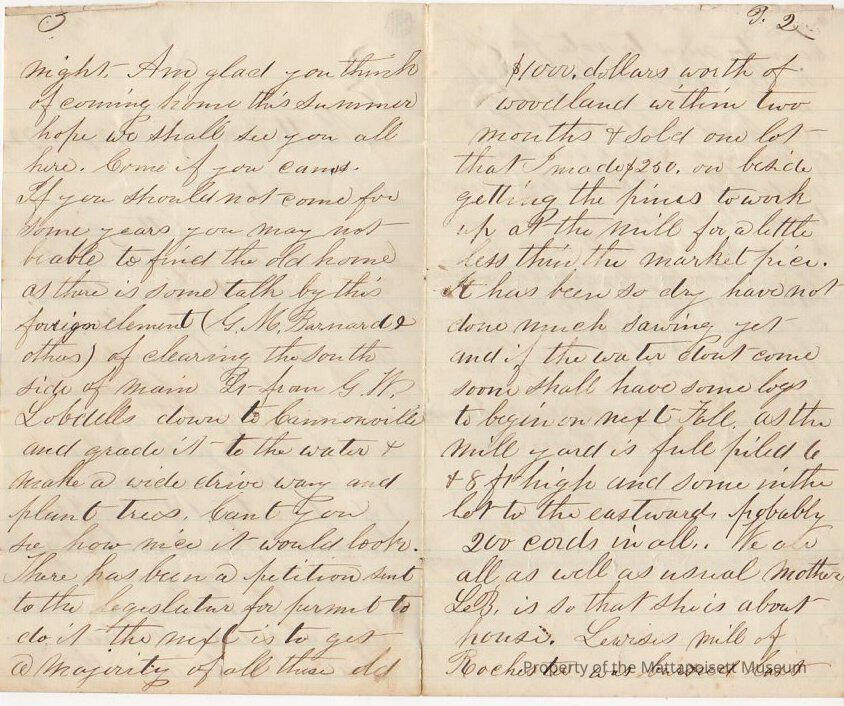 3
night. Am glad you think
of coming home this summer
hope we shall see you all
here. Come if you can.
If you should not come for
some years you may not
be able to find the old home
as there is some talk by this
foreign element (G. M. Barnard &
others) of clearing the south
side of main St from G. W.
Lobdells down to Cannonville
and grade it to the water &
make a wide drive way and
plant trees. Cant you
see how nice it would look.
There has been a petition sent
to the legislatur for permit to
do it the next is to get
a majority of all those old
P. 2
$1000. dollars worth of
woodland within two
months & sold one lot
that I made $250. on beside
getting the pines to work
up at the mill for a little
less thin the market price.
It has been so dry have not
done much sawing yet
and if the water dont come
soon shall have some logs
to begin on next Fall. as the
mill yard is full piled 6
& 8 ft high and some in the
lot to the eastward, probably
200 cords in all. We are
all as well as usual Mother
LeB. is so that she is about
house. Lewises mill of
Rochester was burned last
Property of the Mattapoisett Museum